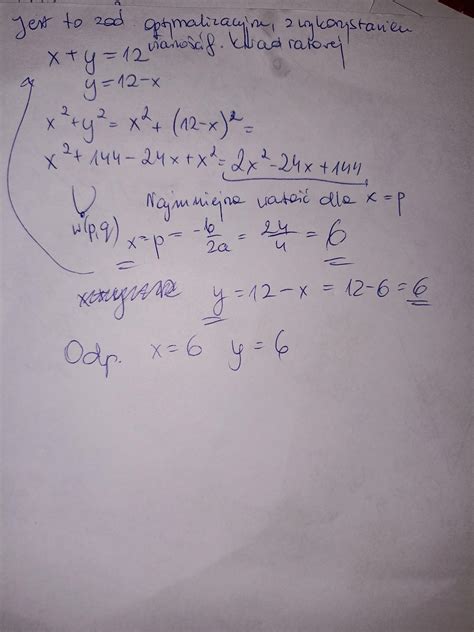 Jest to zad optymalizacyjne, z wykorzystaniem
własności f. kwadratowej
x + y = 12
y = 12-x
x² + y² = x² + (12-x)² =
x² + 144 - 24x + x² = 2x² - 24x + 144
Najmniejsza wartość dla x = p
w(p,q)
x = p = -b/2a = 24/4 = 6
y = 12 - x = 12 - 6 = 6
Odp. x = 6 y = 6